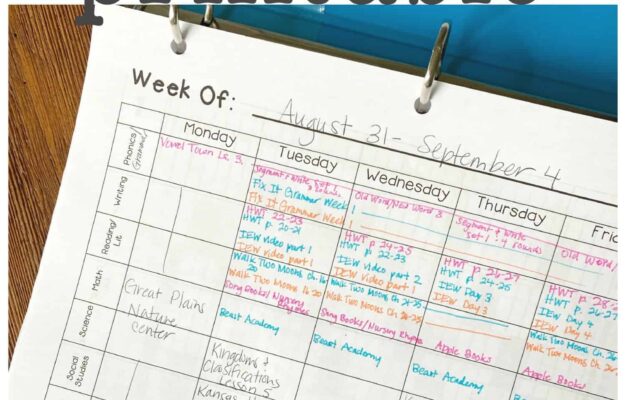 Week Of: August 31 - September 4
Monday
Tuesday
Wednesday
Thursday
Phonics
Grammar
Vowel Town Ls. 3
Segment & Write Set 1
Old Word/New Word 3
Segment & Write
Set 1 : 4 rounds
Old Word/
Writing
Fix It Grammar Week 1
Fix It Grammar Week 1
HWT 22-23
HWT p. 20-21
HWT p. 24-25
HWT p. 22-23
HWT p. 26-27
HWT p. 24-25
HWT p. 28-
Reading/
Lit
IEW video part 1
IEW video part 1
IEW video part 2
IEW Video part 1
IEW Day 3
IEW Day 3
IEW Day 4
IEW Day 4
Walk Two Moons Ch. 16-
20
Walk Two Moons 16-20
Walk Two Moons Ch. 21-25
Walk Two Moons Ch. 21-25
Walk Two Moons Ch. 26
Walk Two Moons Ch.
Song Books/Nursery
Rhymes
Song Books/Nursery Rhyme
Apple Books
Apple Books
Math
Great Plains
Nature
Center
Beast Academy
Beast Academy
Beast Academy
Science
Kingdoms &
Classifications
Lesson 5
Social
Studies
Kansas